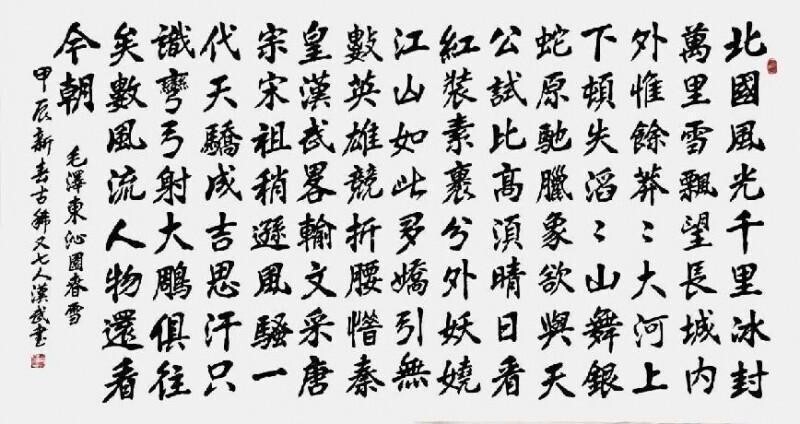 北國風光千里冰封
萬里雪飄望長城内
外惟餘莽〻大河上
下頓失滔〻山舞銀
蛇原馳臘象欲與天
公試比高須晴日看
紅裝素裹分外妖嬈
江山如此多嬌引無
數英雄競折腰惜秦
皇漢武畧輸文采唐
宗宋祖稍遜風騷一
代天驕成吉思汗只
識彎弓射大鵰俱往
矣數風流人物還看
今朝
毛澤東沁園春雪
甲辰新春古稀又七人漢武書